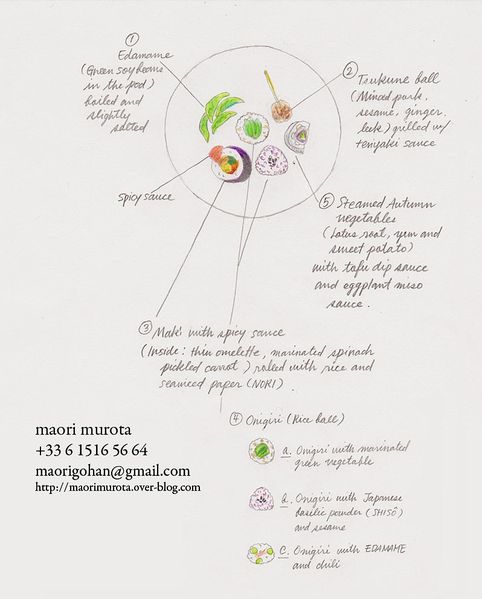 ①
Edamame
(Green soybeans
in the pod)
boiled and
slightly
salted
②
Tsukune ball
(Minced pork,
sesame, ginger
leek) grilled w/
teriyaki sauce
spicy sauce
⑤ Steamed Autumn
vegetables
(Lotus root, yam and
sweet potato)
with tofu dip sauce
and eggplant miso
sauce.
③ Maki with spicy sauce
(Inside: thin omelette, marinated spinach
pickled carrot) rolled with rice and
seaweed paper (NORI)
④ Onigiri (Rice ball)
a. Onigiri with marinated
green vegetable
b. Onigiri with Japanese
basilic powder (SHISÔ)
and sesame
c. Onigiri with EDAMAME
and chili
maori murota
+33 6 1516 56 64
maorigohan@gmail.com
http://maorimurota.over-blog.com